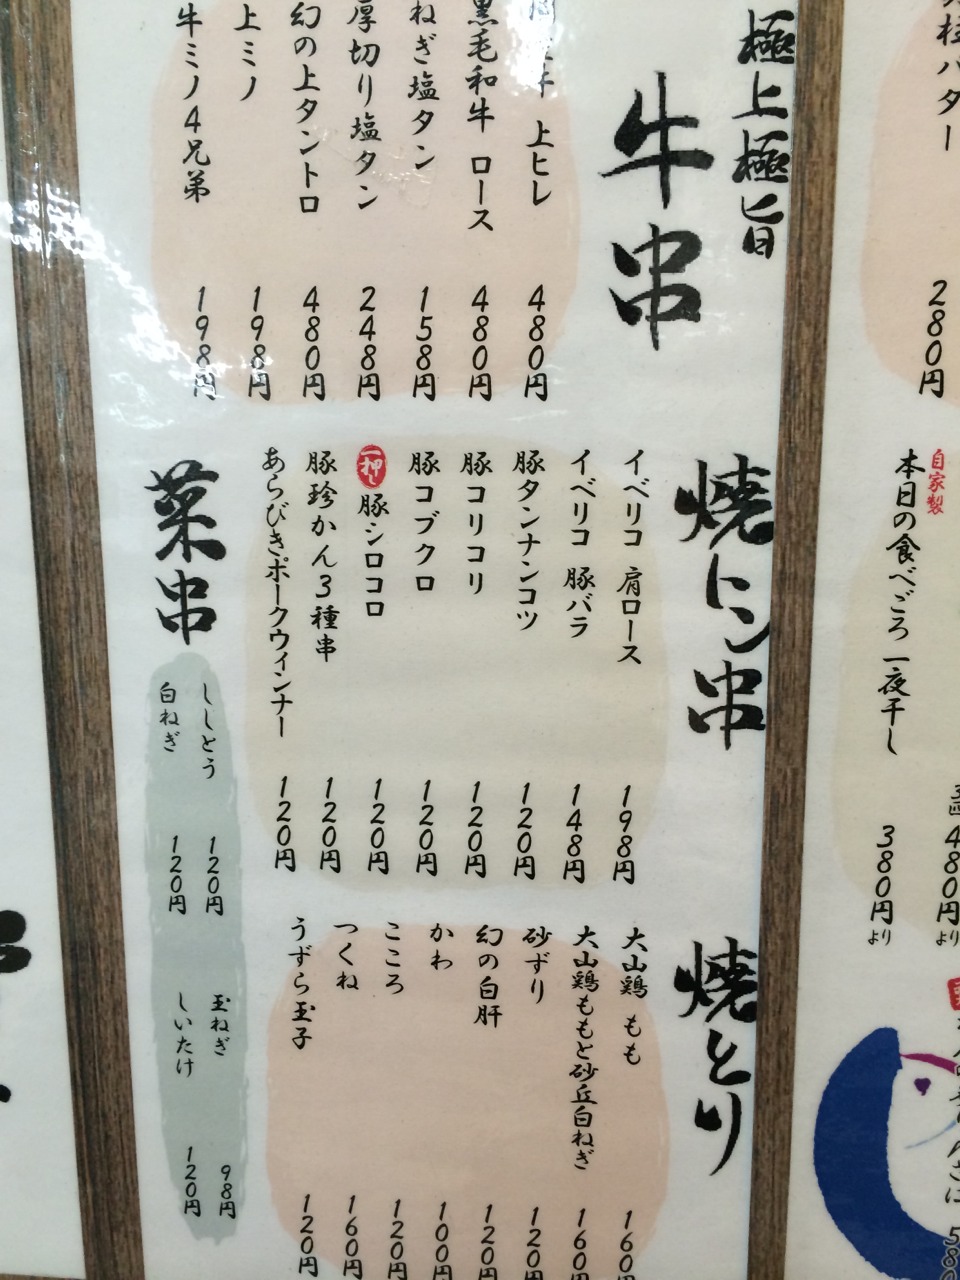 バター
280円
自家製
本日の食べごろ 一夜干し
380円より
480円より
極上極旨
牛串
上ヒレ
480円
黒毛和牛 ロース
480円
ねぎ塩タン
158円
厚切り塩タン
248円
幻の上タントロ
480円
上ミノ
198円
牛ミノ4兄弟
198円
焼トン串
イベリコ 肩ロース
198円
イベリコ 豚バラ
148円
豚タンナンコツ
120円
豚コリコリ
120円
豚コブクロ
120円
一押し 豚シロコロ
120円
豚珍かん3種串
120円
あらびきポークウィンナー
120円
焼とり
大山鶏 もも
160円
大山鶏ももと砂丘白ねぎ
160円
砂ずり
120円
幻の白肝
120円
かわ
100円
こころ
120円
つくね
160円
うずら玉子
120円
菜串
ししとう
120円
白ねぎ
120円
玉ねぎ
98円
しいたけ
120円